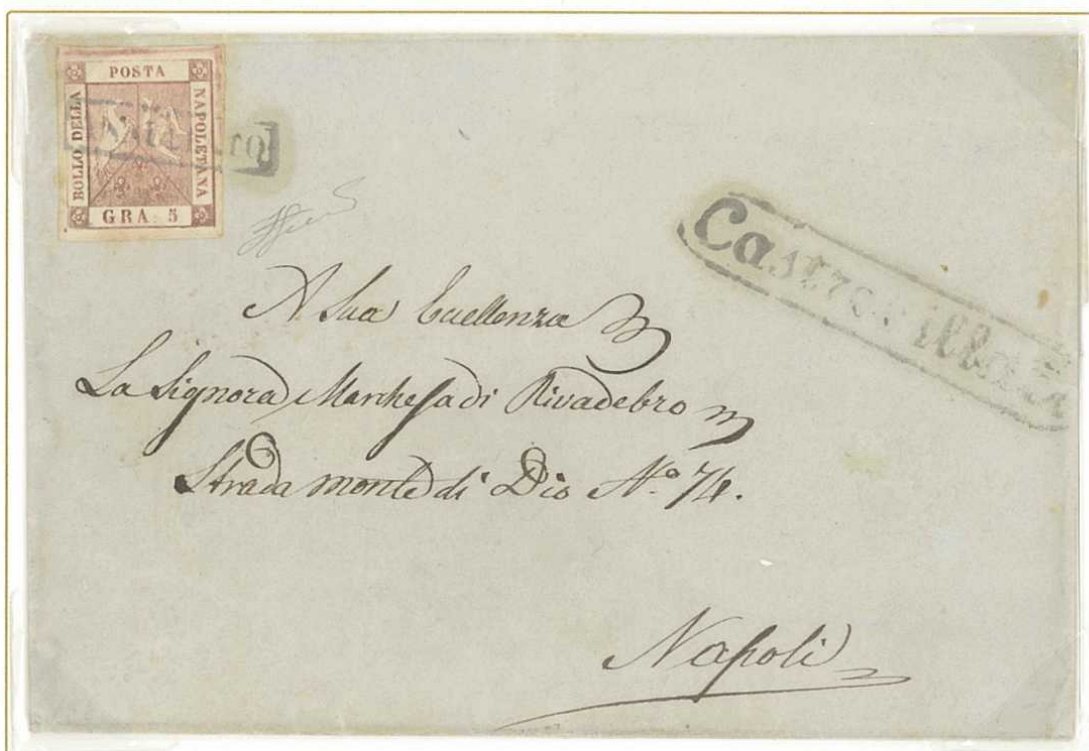 POSTA
BOLLO DELLA
NAPOLETANA
GRA 5
Castrovillari
A Sua Eccellenza
La Signora Marchesa di Rivadebro
Strada monte di Dio Nº 74.
Napoli